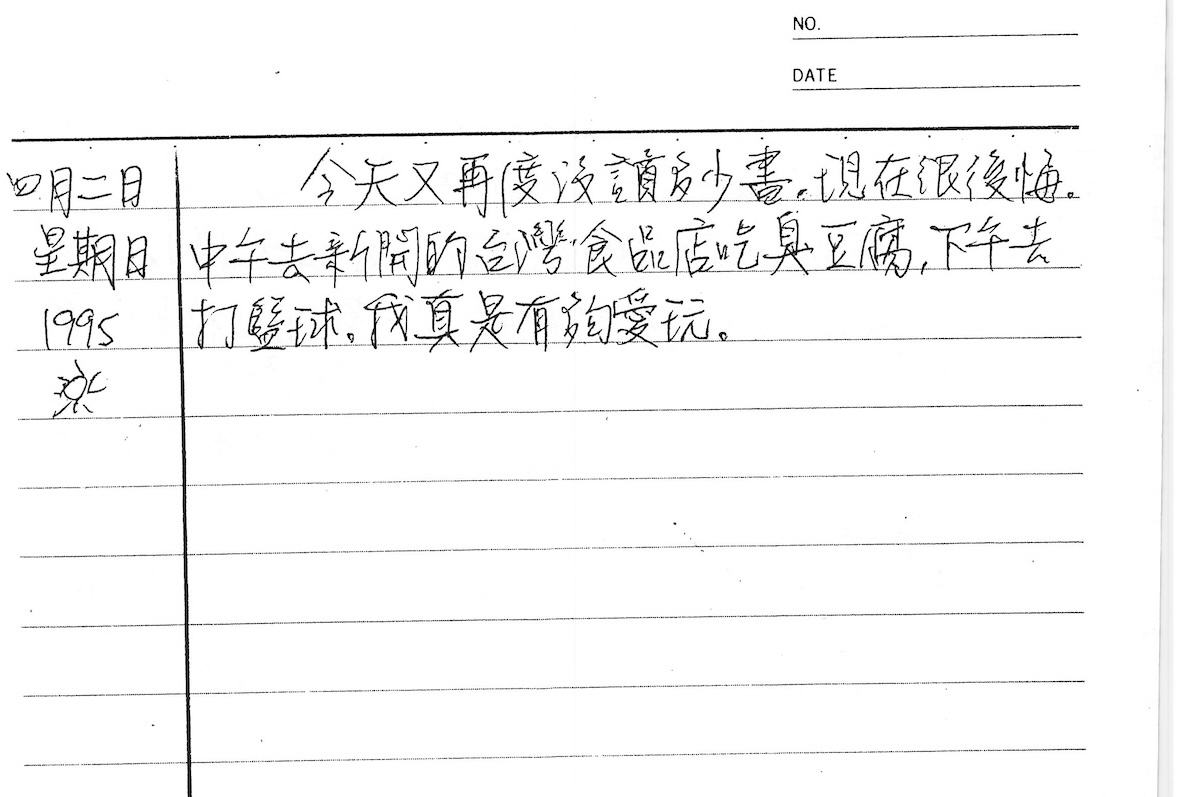 NO.
DATE
四月二日
星期日
1995
今天又再度沒讀多少書,現在很後悔。
中午去新開的台灣食品店吃臭豆腐,下午去
打籃球。我真是有夠愛玩。